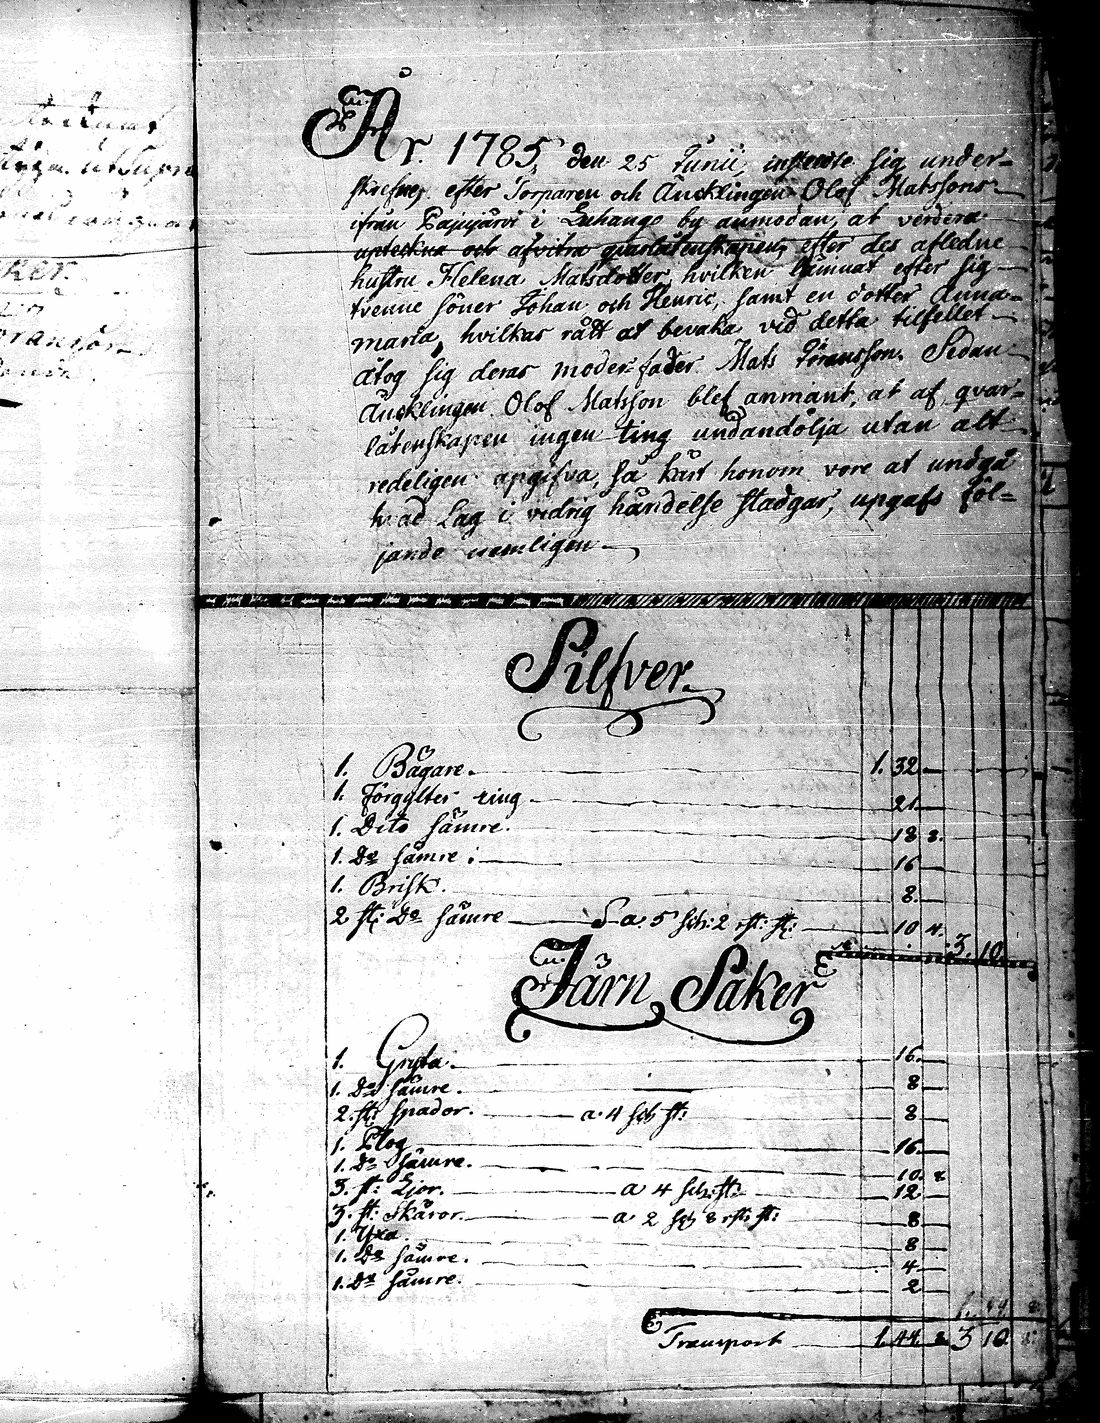 År 1785, den 25 Junii, instälte sig under-
skrefne, efter Torparen och Äncklingen Olof Matssons
ifrån Pajujärvi i Luhango by anmodan, at verdera
upteckna och afvitra qvarlåtenskapen, efter des afledne
hustru Helena Matsdotter, hvilken lämnat efter sig
tvenne söner Johan och Henric, samt en dotter Anna-
maria, hvilkas rätt at bevaka vid detta tilfellet
åtog sig deras moder-fader Mats Göransson. Sedan
Äncklingen Olof Matsson blef anmänt, at af qvar-
låtenskapen ingen ting undandölja utan alt
redeligen apgifva, så kärt honom vore at undgå
hvad Lag i vidrig händelse stadgar, upgafs föl-
jande nemligen
Silfver.
1. Bägare. 1. 32
1. Förgylter ring 21
1. Dito sämre. 18 8.
1. Do sämre 16
1. Brisk. 8.
2 st: Do sämre a. 5 sch: 2 rst: st: 10 4.
3. 10.
Järn Saker
1. Gryta. 16.
1. Do sämre. 8
2. st: spador. a. 4 sch st: 8
1. Plog 16
1. Do sämre. 10. 8
3. st: Lior. a 4 sch: st: 12
3. st: Skäror. a 2 sch 8 rst: st: 8
1. Yxa. 8
1. Do sämre. 4
1. Do sämre. 2
1. 44 8
Transport 1. 44 8 3 10